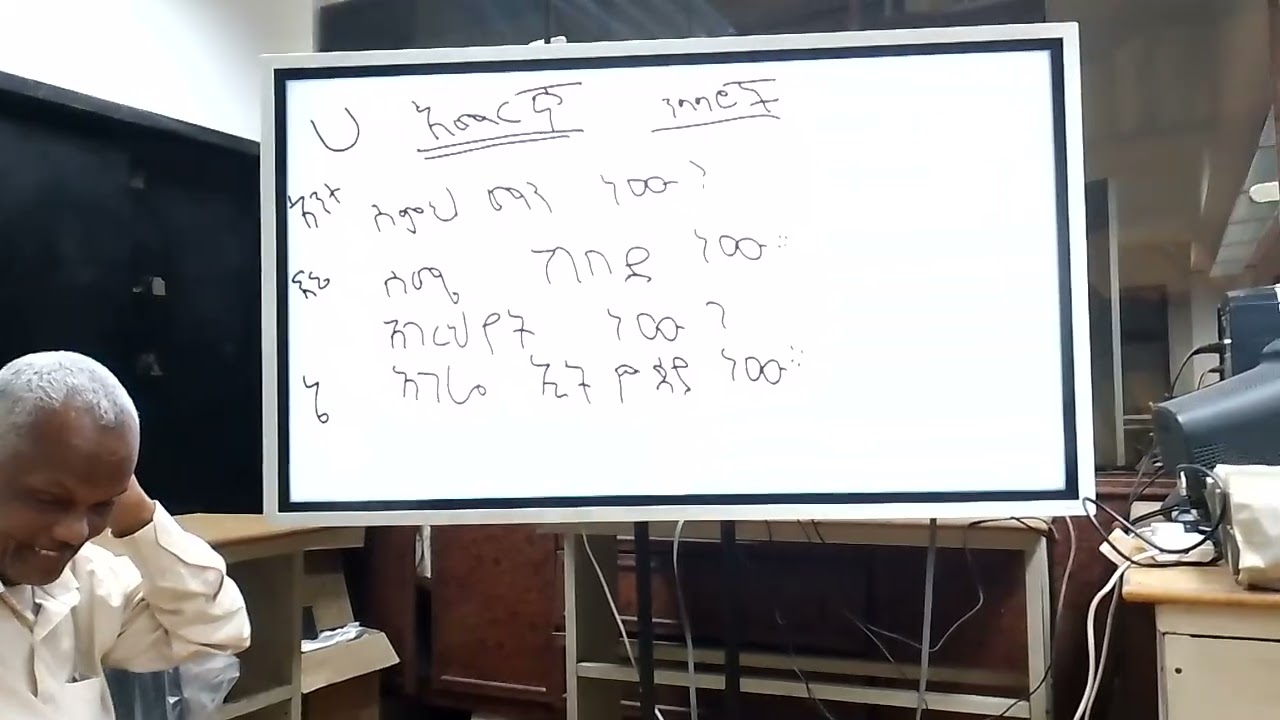 ሀ አማርኛ ንባባዊች
አንተ ስምህ ማን ነው?
እኔ ስሜ ከበደ ነው።
አገርህ የት ነው?
ኔ አገሬ ኢትዮጵያ ነው።